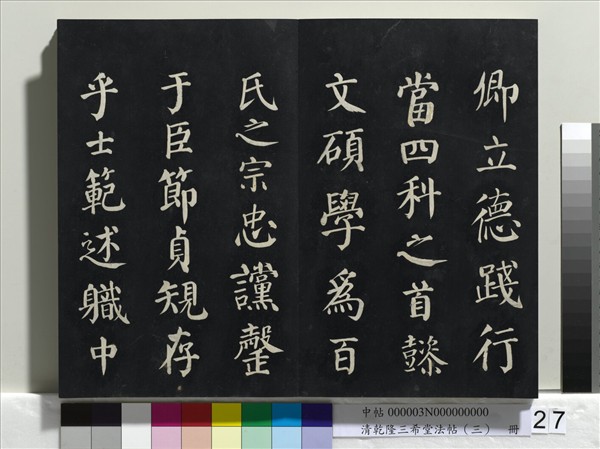 卿立德踐行
當四科之首懿
文碩學爲百
氏之宗忠讜罄
于臣節貞規存
乎士範述職中
中帖 000003N000000000
清乾隆三希堂法帖（三） 冊
27